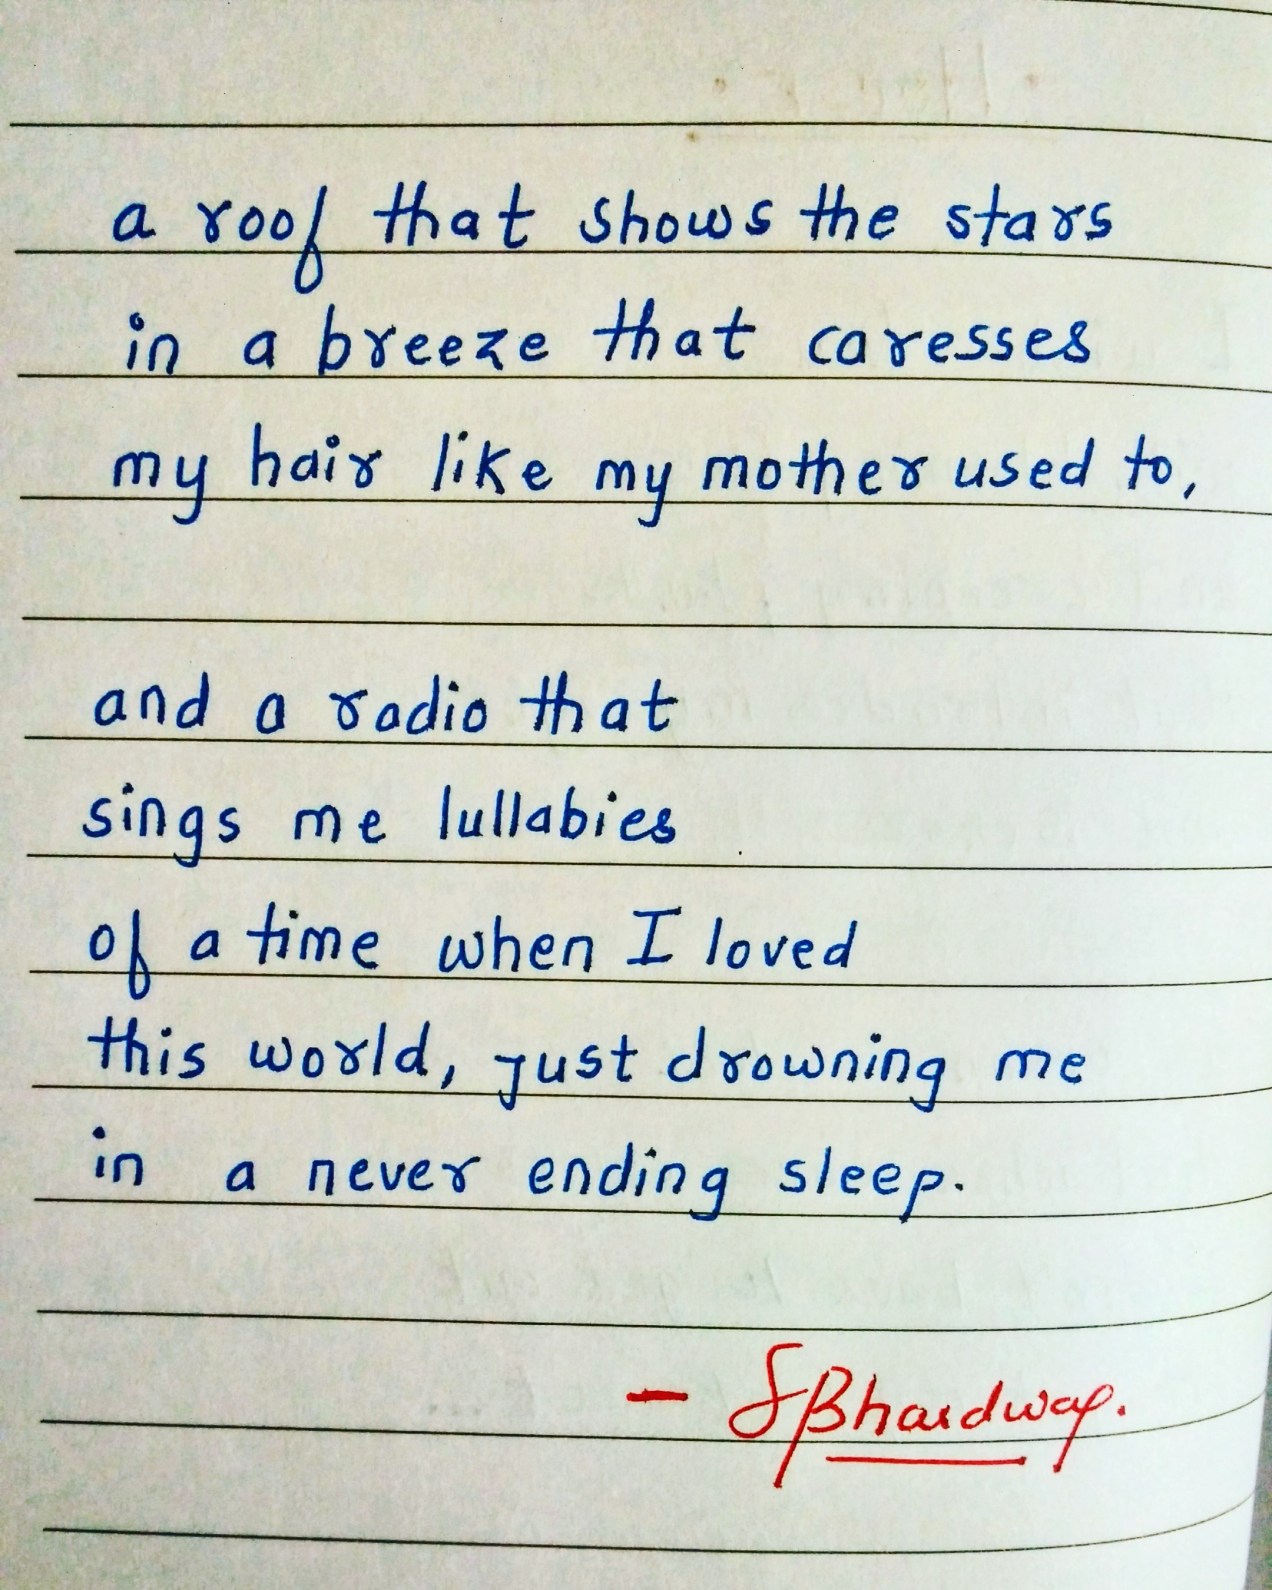 a roof that shows the stars
in a breeze that caresses
my hair like my mother used to,
and a radio that
sings me lullabies
of a time when I loved
this world, just drowning me
in a never ending sleep.
- SBhardwaj.